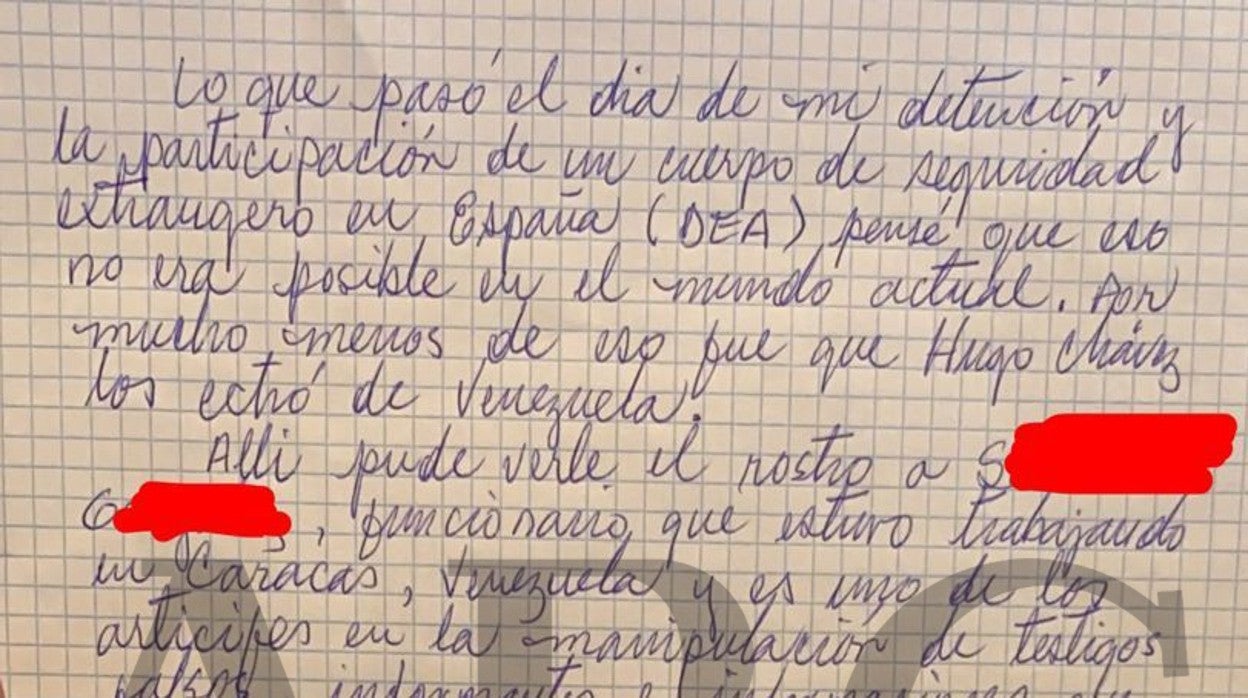 Lo que pasó el dia de mi detención y
la participación de un cuerpo de seguridad
extrangero en España (DEA) pensé que eso
no era posible en el mundo actual. Por
mucho menos de eso fue que Hugo Chávez
los echó de Venezuela.
Alli pude verle el rostro a S
G , funcionario que estuvo trabajando
en Caracas, Venezuela y es uno de los
articipes en la manipulación de testigos
falsos informantes e informaciones
ABC